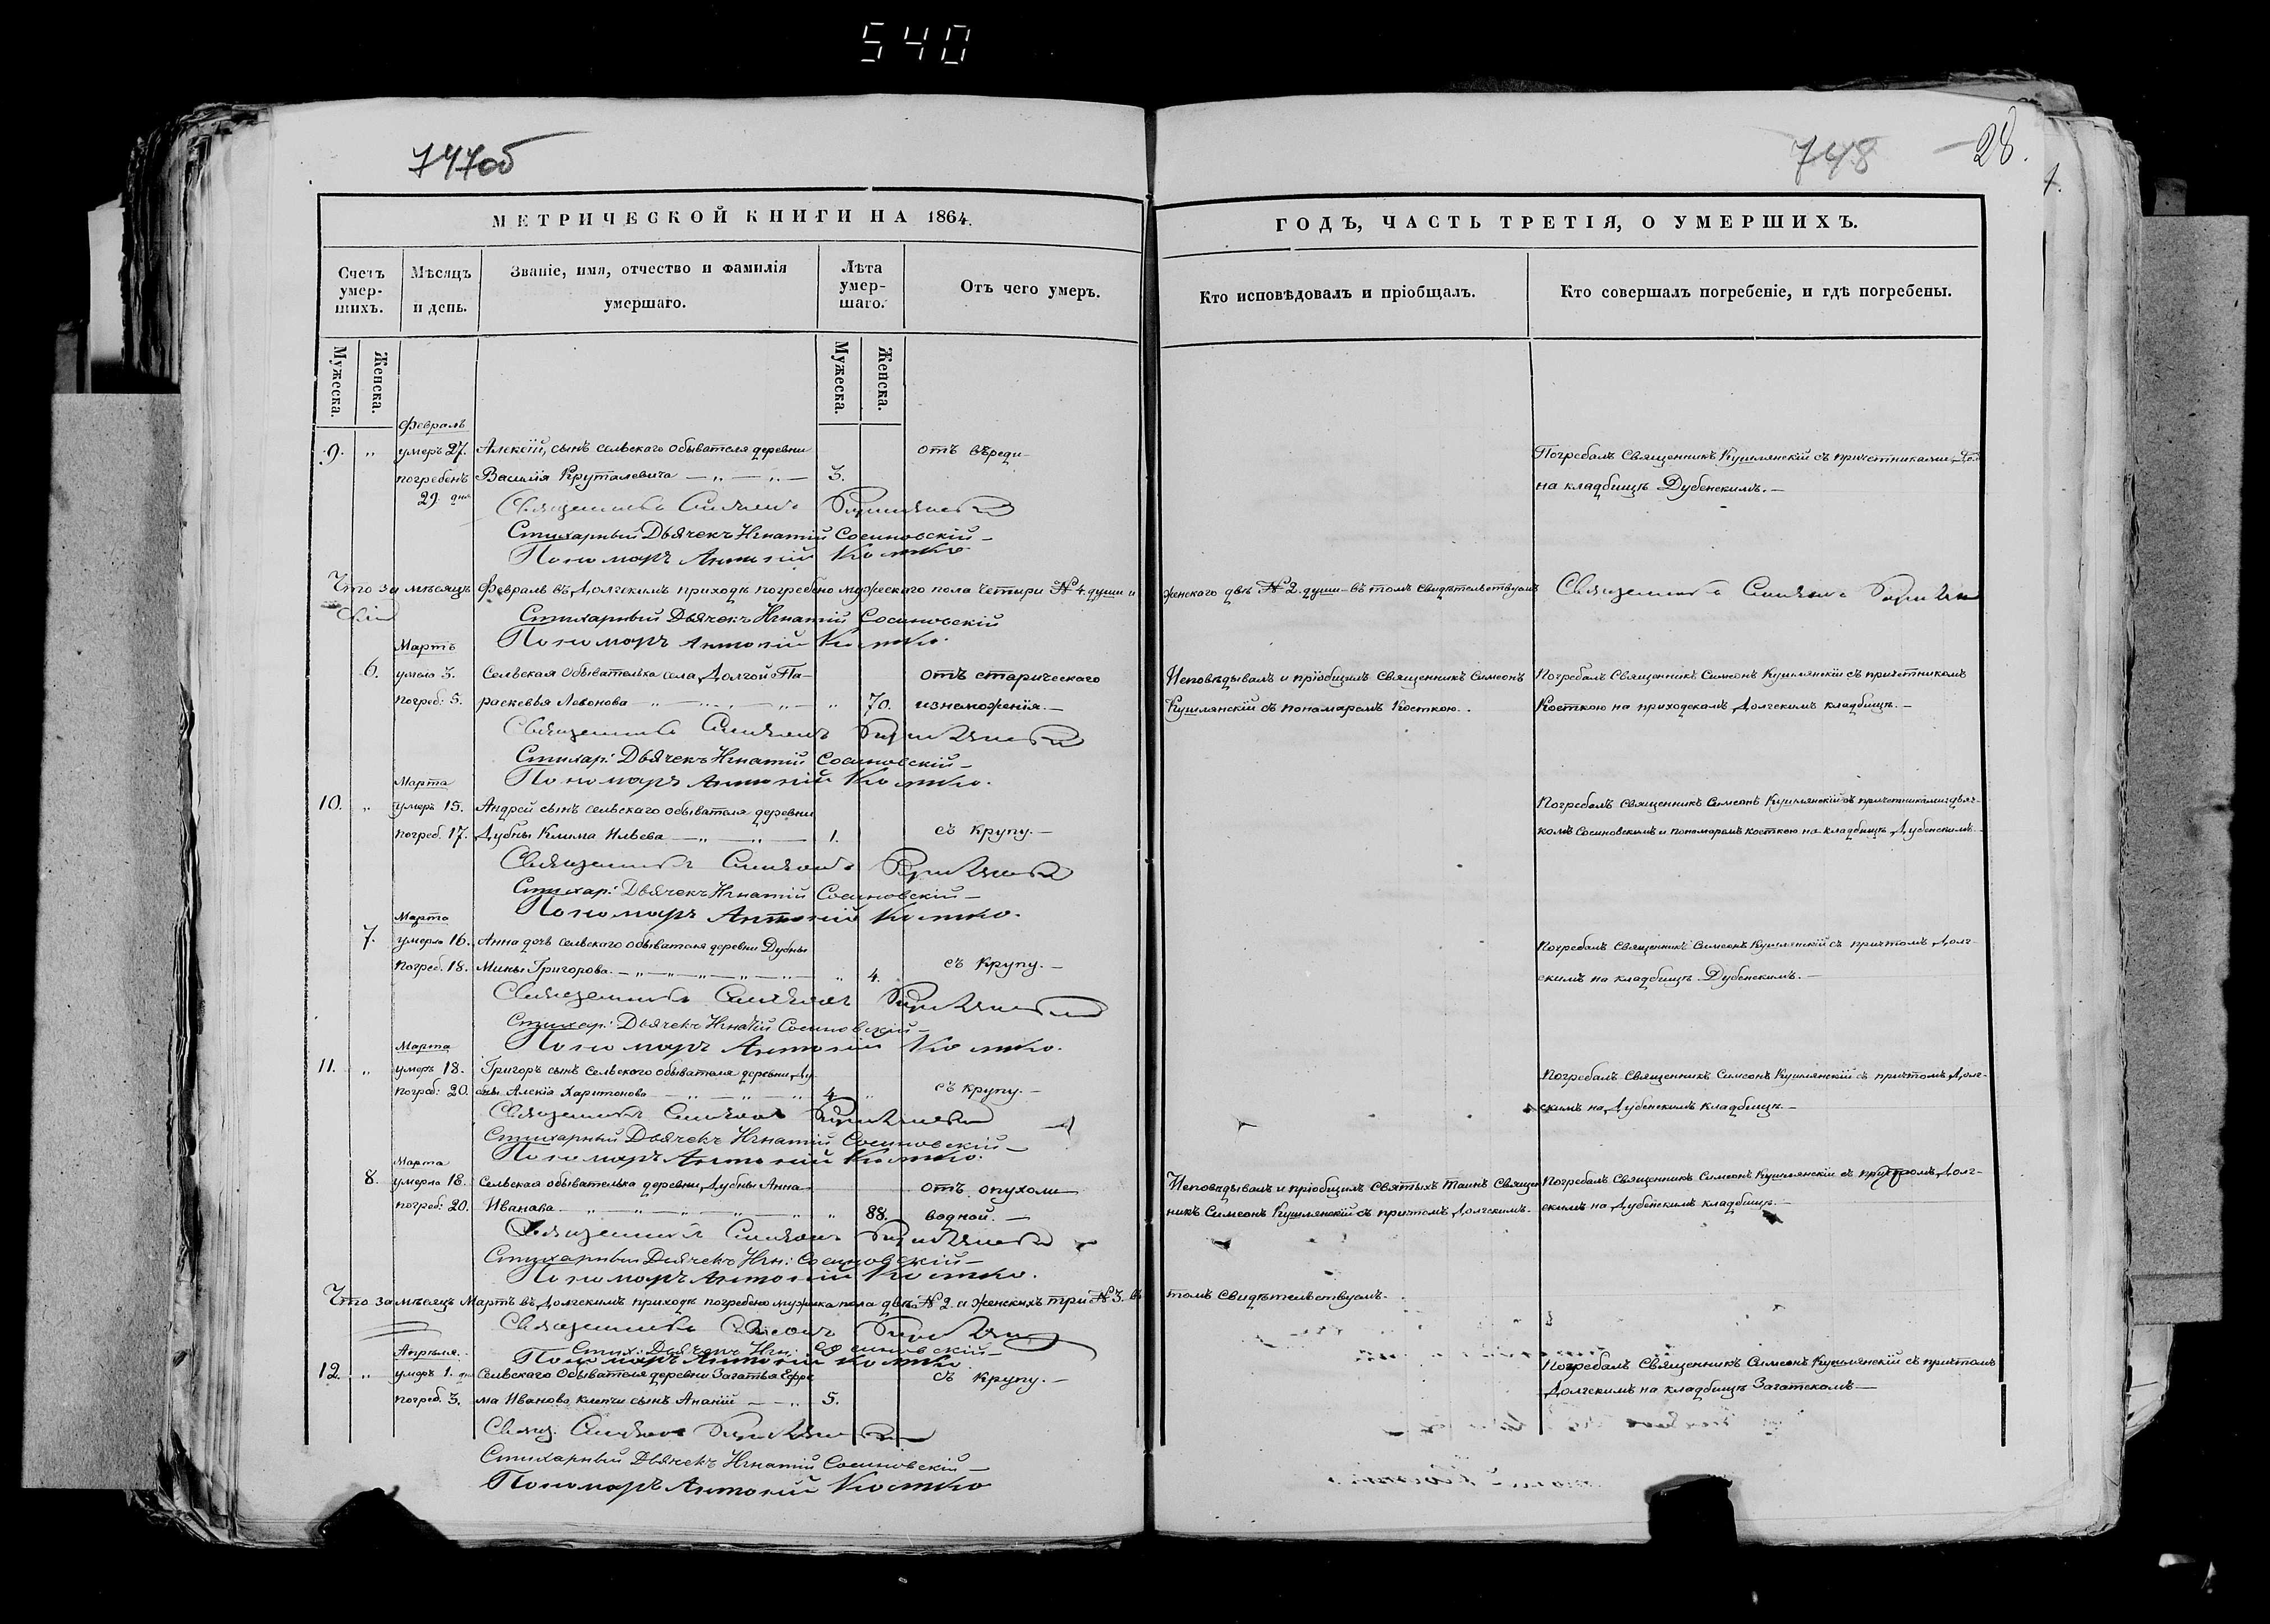 540
747об
748
28.
МЕТРИЧЕСКОЙ КНИГИ НА 1864.
ГОДЪ, ЧАСТЬ ТРЕТІЯ, О УМЕРШИХЪ.
Счетъ умер-
шихъ.
Мѣсяцъ
и день.
Званіе, имя, отчество и фамилія
умершаго.
Лѣта
умер-
шаго.
Отъ чего умеръ.
Кто исповѣдовалъ и пріобщалъ.
Кто совершалъ погребеніе, и гдѣ погребены.
Мужеска.
Женска.
Мужеска.
Женска.
Февраль
9. „ умеръ 27. Алексій, сынъ сельскаго обывателя деревни отъ вѣреди Погребалъ Священникъ Кушлянскій съ причетниками
погребенъ Василія Круталевича — „ — „ — 3. на кладбищѣ Дубенскимъ. —
29 дня Священникъ Симеонъ Кушлянскій
Стихарный Дьячекъ Игнатій Сосиновскій —
Пономаръ Антоній Костко.
Что за мѣсяцъ Февраль въ Долгскимъ приходѣ погребено мужескаго пола четыри № 4. души и женскаго двѣ № 2. души — въ томъ свидѣтельствуемъ Священникъ Симеонъ
Стихарный Дьячекъ Игнатій Сосиновскій
Пономаръ Антоній Костко.
Мартъ
6. умела 3. Сельская обывателька села Долгой Па- отъ старическаго Исповѣдывалъ и пріобщилъ Священникъ Симеонъ Погребалъ Священникъ Симеонъ Кушлянскій съ причетникомъ
погреб: 5. раскевья Левонова — „ — „ — „ 70. изнеможенія. — Кушлянскій съ пономаремъ Косткою. Косткою на приходскамъ Долгскимъ кладбищѣ. —
Священникъ Симеонъ Кушлянскій
Стихар: Дьячекъ Игнатій Сосиновскій —
Марта Пономаръ Антоній Костко.
10. „ умеръ 15. Андрей сынъ сельскаго обывателя деревни Погребалъ Священникъ Симеонъ Кушлянскій съ причетниками дьяч-
погреб. 17. Дубны Клима Ильева — „ — „ — 1. съ крупу. — комъ Сосиновскимъ и пономаремъ Косткою на кладбищѣ Дубенскимъ. —
Священникъ Симеонъ Кушлянскій
Стихар: Дьячекъ Игнатій Сосиновскій —
Марта Пономаръ Антоній Костко.
7. умерла 16. Анна дочь сельскаго обывателя деревни Дубны Погребалъ Священникъ Симеонъ Кушлянскій съ причтомъ Долг-
погреб. 18. Мины Григорова. — „ — „ — „ — „ — „ 4. съ крупу. — скимъ на кладбищѣ Дубенскимъ. —
Священникъ Симеонъ Кушлянскій
Стихар: Дьячекъ Игнатій Сосиновскій —
Марта Пономаръ Антоній Костко.
11. „ умеръ 18. Григоръ сынъ Сельскаго обывателя деревни Ду Погребалъ Священникъ Симеонъ Кушлянскій съ причтомъ Долг-
погреб: 20. бны Алексія Харитонова — „ — „ — „ 4 „ съ крупу. — скимъ на Дубенскимъ кладбищѣ. —
Священникъ Симеонъ Кушлянскій
Стихарный Дьячекъ Игнатій Сосиновскій —
Марта Пономаръ Антоній Костко.
8. умерла 18. Сельская обывателька деревни Дубны Анна отъ опухоли Исповѣдывалъ и пріобщилъ Святыхъ Таинъ Священ Погребалъ Священникъ Симеонъ Кушлянскій съ причтомъ Долг-
погреб: 20. Иванова — „ — „ — „ — „ — „ 88. водной. — никъ Симеонъ Кушлянскій съ притомъ Долгскимъ. — скимъ на Дубенскимъ кладбищѣ. —
Священникъ Симеонъ Кушлянскій
Стихарный Дьячекъ Игн: Сосиновскій —
Пономаръ Антоній Костко.
Что за мѣсяцъ Мартъ въ Долгскимъ приходѣ погребено мужика пола два № 2. и женскихъ три № 3. въ томъ свидѣтельствуемъ.
Священникъ Симеонъ
Апреля. Стих: Дьячекъ Игн: Сосиновскій —
Пономаръ Антоній Костко
12. „ умеръ 1. дня Сельскаго Обывателя деревни Загатья Ефре съ крупу. — Погребалъ Священникъ Симеонъ Кушлянскій съ причтомъ
погреб. 3. ма Иванова сынъ Ананій — „ 5. Долгскимъ на кладбищѣ Загатскамъ —
Свящ. Симеонъ Кушлянскій
Стихарный Дьячекъ Игнатій Сосиновскій —
Пономаръ Антоній Костко